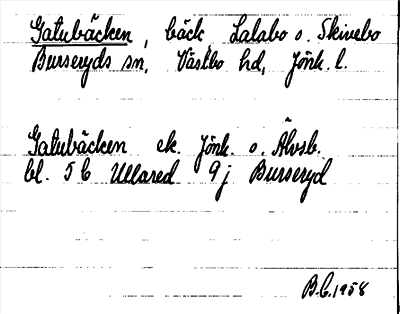 Gatubäcken, bäck Lalabo o. Skivebo
Burseryds sn, Västbo hd, Jönk. l.
Gatubäcken ek. Jönk. o. Älvsb.
bl. 5 C Ullared 9 j Burseryd
B.C. 1958